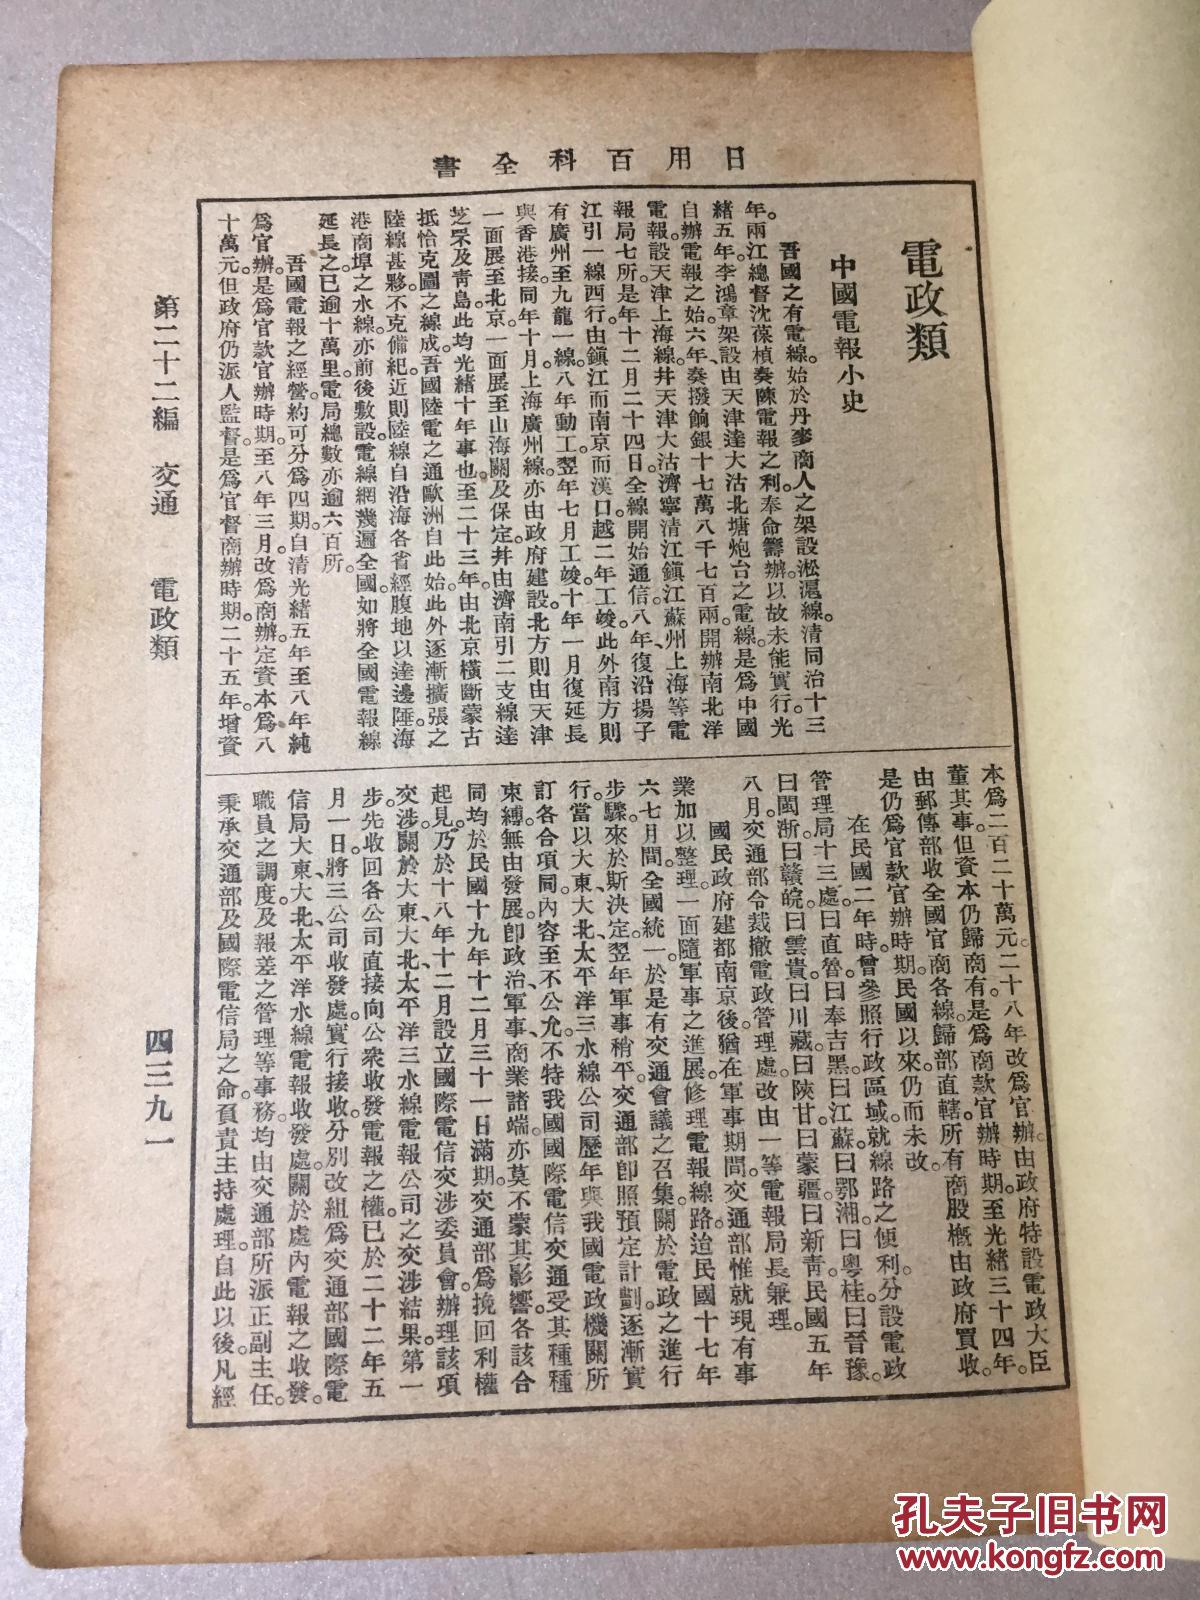 日用百科全書
電政類
中國電報小史
吾國之有電線。始於丹麥商人之架設淞滬線。清同治十三
年。兩江總督沈葆楨奏陳電報之利。奉命籌辦。以故未能實行。光
緒五年。李鴻章架設由天津達大沽北塘炮台之電線。是爲中國
自辦電報之始。六年、奏撥餉銀十七萬八千七百兩。開辦南北洋
電報。設天津上海線。幷天津大沽濟寧清江鎮江蘇州上海等電
報局七所。是年十二月二十四日。全線開始通信。八年、復沿揚子
江引一線西行。由鎮江而南京而漢口。越二年工竣。此外南方則
有廣州至九龍一線。八年動工。翌年七月工竣。十年一月復延長
與香港接。同年十月。上海廣州線。亦由政府建設。北方則由天津
一面展至北京。一面展至山海關及保定。幷由濟南引二支線達
芝罘及靑島。此均光緒十年事也。至二十三年。由北京橫斷蒙古
抵恰克圖之線成。吾國陸電之通歐洲自此始。此外逐漸擴張之
陸線甚夥。不克備紀。近則陸線自沿海各省經腹地以達邊陲。海
港商埠之水線。亦前後敷設。電線網幾遍全國。如將全國電報線
延長之。已逾十萬里。電局總數亦逾六百所。
吾國電報之經營。約可分爲四期。自清光緒五年至八年純
爲官辦。是爲官款官辦時期。至八年三月改爲商辦。定資本爲八
十萬元。但政府仍派人監督。是爲官督商辦時期。二十五年。增資
本爲二百二十萬元。二十八年改爲官辦。由政府特設電政大臣
董其事。但資本仍歸商有。是爲商款官辦時期。至光緒三十四年。
由郵傳部收全國官商各線歸部直轄。所有商股。槪由政府買收。
是仍爲官款官辦時期。民國以來。仍而未改。
在民國二年時。曾參照行政區域。就線路之便利。分設電政
管理局十三處。曰直魯。曰奉吉黑。曰江蘇。曰鄂湘。曰粵桂。曰晉豫。
曰閩浙。曰贛皖。曰雲貴。曰川藏。曰陝甘。曰蒙疆。曰新靑。民國五年
八月。交通部令裁撤電政管理處。改由一等電報局長兼理。
國民政府建都南京後。猶在軍事期間。交通部惟就現有事
業加以整理。一面隨軍事之進展。修理電報線路。迨民國十七年
六七月間。全國統一。於是有交通會議之召集。關於電政之進行
步驟。來於斯決定。翌年軍事稍平。交通部卽照預定計劃。逐漸實
行。當以大東、大北、太平洋三水線公司。歷年與我國電政機關所
訂各合項同。內容至不公允。不特我國國際電信交通。受其種種
束縛。無由發展。卽政治軍事、商業諸端。亦莫不蒙其影響。各該合
同。均於民國十九年十二月三十一日滿期。交通部爲挽回利權
起見。乃於十八年十二月設立國際電信交涉委員會。辦理該項
交涉。關於大東、大北、太平洋三水線電報公司之交涉結果。第一
步先收回各公司直接向公衆收發電報之權。已於二十二年五
月一日。將三公司收發處。實行接收。分別改組爲交通部國際電
信局大東、大北、太平洋水線電報收發處。關於處內電報之收發。
職員之調度。及報差之管理等事務。均由交通部所派正副主任。
秉承交通部及國際電信局之命。頁責主持處理。自此以後。凡經
第二十二編 交通 電政類
四三九一
孔夫子旧书网
www.kongfz.com